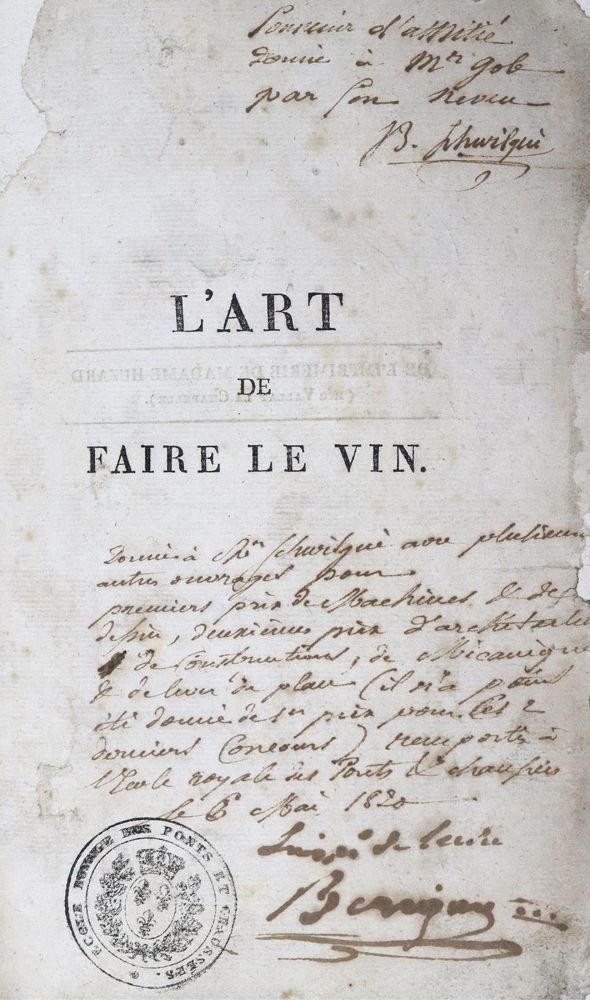 Souvenir d'amitié
Donné à Mr Gob
par Son Neveu
B. Schwilgué
L'ART
DE
DE L'IMPRIMERIE DE MADAME HUZARD
FAIRE LE VIN.
Donné à Mr Schwilgué avec plusieurs
autres ouvrages pour
premiers prix de Machines & de
dessin, deuxièmes prix d'architecture
& de Constructions, de Mécanique
& de lever de plan (il n'a point
été donné de prix pour les 2
derniers Concours) remportés à
l'Ecole royale des Ponts & chaussées
le 6 Mai 1820
de l'école
Berigny
ECOLE ROYALE DES PONTS ET CHAUSSÉES.